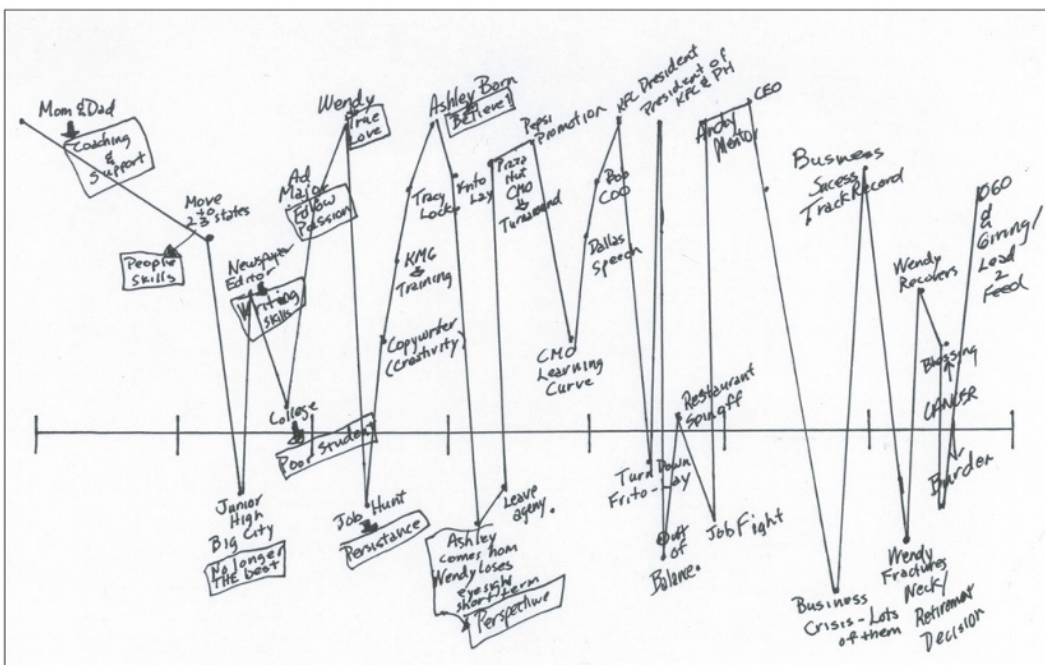 Mom & Dad
Coaching
&
Support
Move
to
23 states
People
Skills
Junior
High
Big City
No longer
THE best
Newspaper
Editor
Writing
Skills
College
Poor Student
Ad
Major
Follow
Passion
Wendy
True
Love
Job Hunt
Persistance
Copywriter
(Creativity)
KMG
&
Training
Tracy
Locke
Ashley Born
Believe!
Ashley
comes hom
Wendy loses
eyesight
short term
Perspective
Leave
ageny.
Frito
Lay
Pizza
Hut
CMO
Turnaround
Pepsi
Promotion
CMO
Learning
Curve
Dallas
Speech
Bob
COO
KFC President
Turn Down
Frito-Lay
President of
KFC & PH
Out
of
Balance.
Restaurant
Spinoff
Job Fight
Andy
Mentor
CEO
Business
Crisis - Lots
of them
Business
Sucess
Track Record
Wendy
Fractures
Neck/
Retirement
Decision
Wendy
Recovers
Blessing
CANCER
Burden
OGO
&
Giving/
Lead
2
Feed